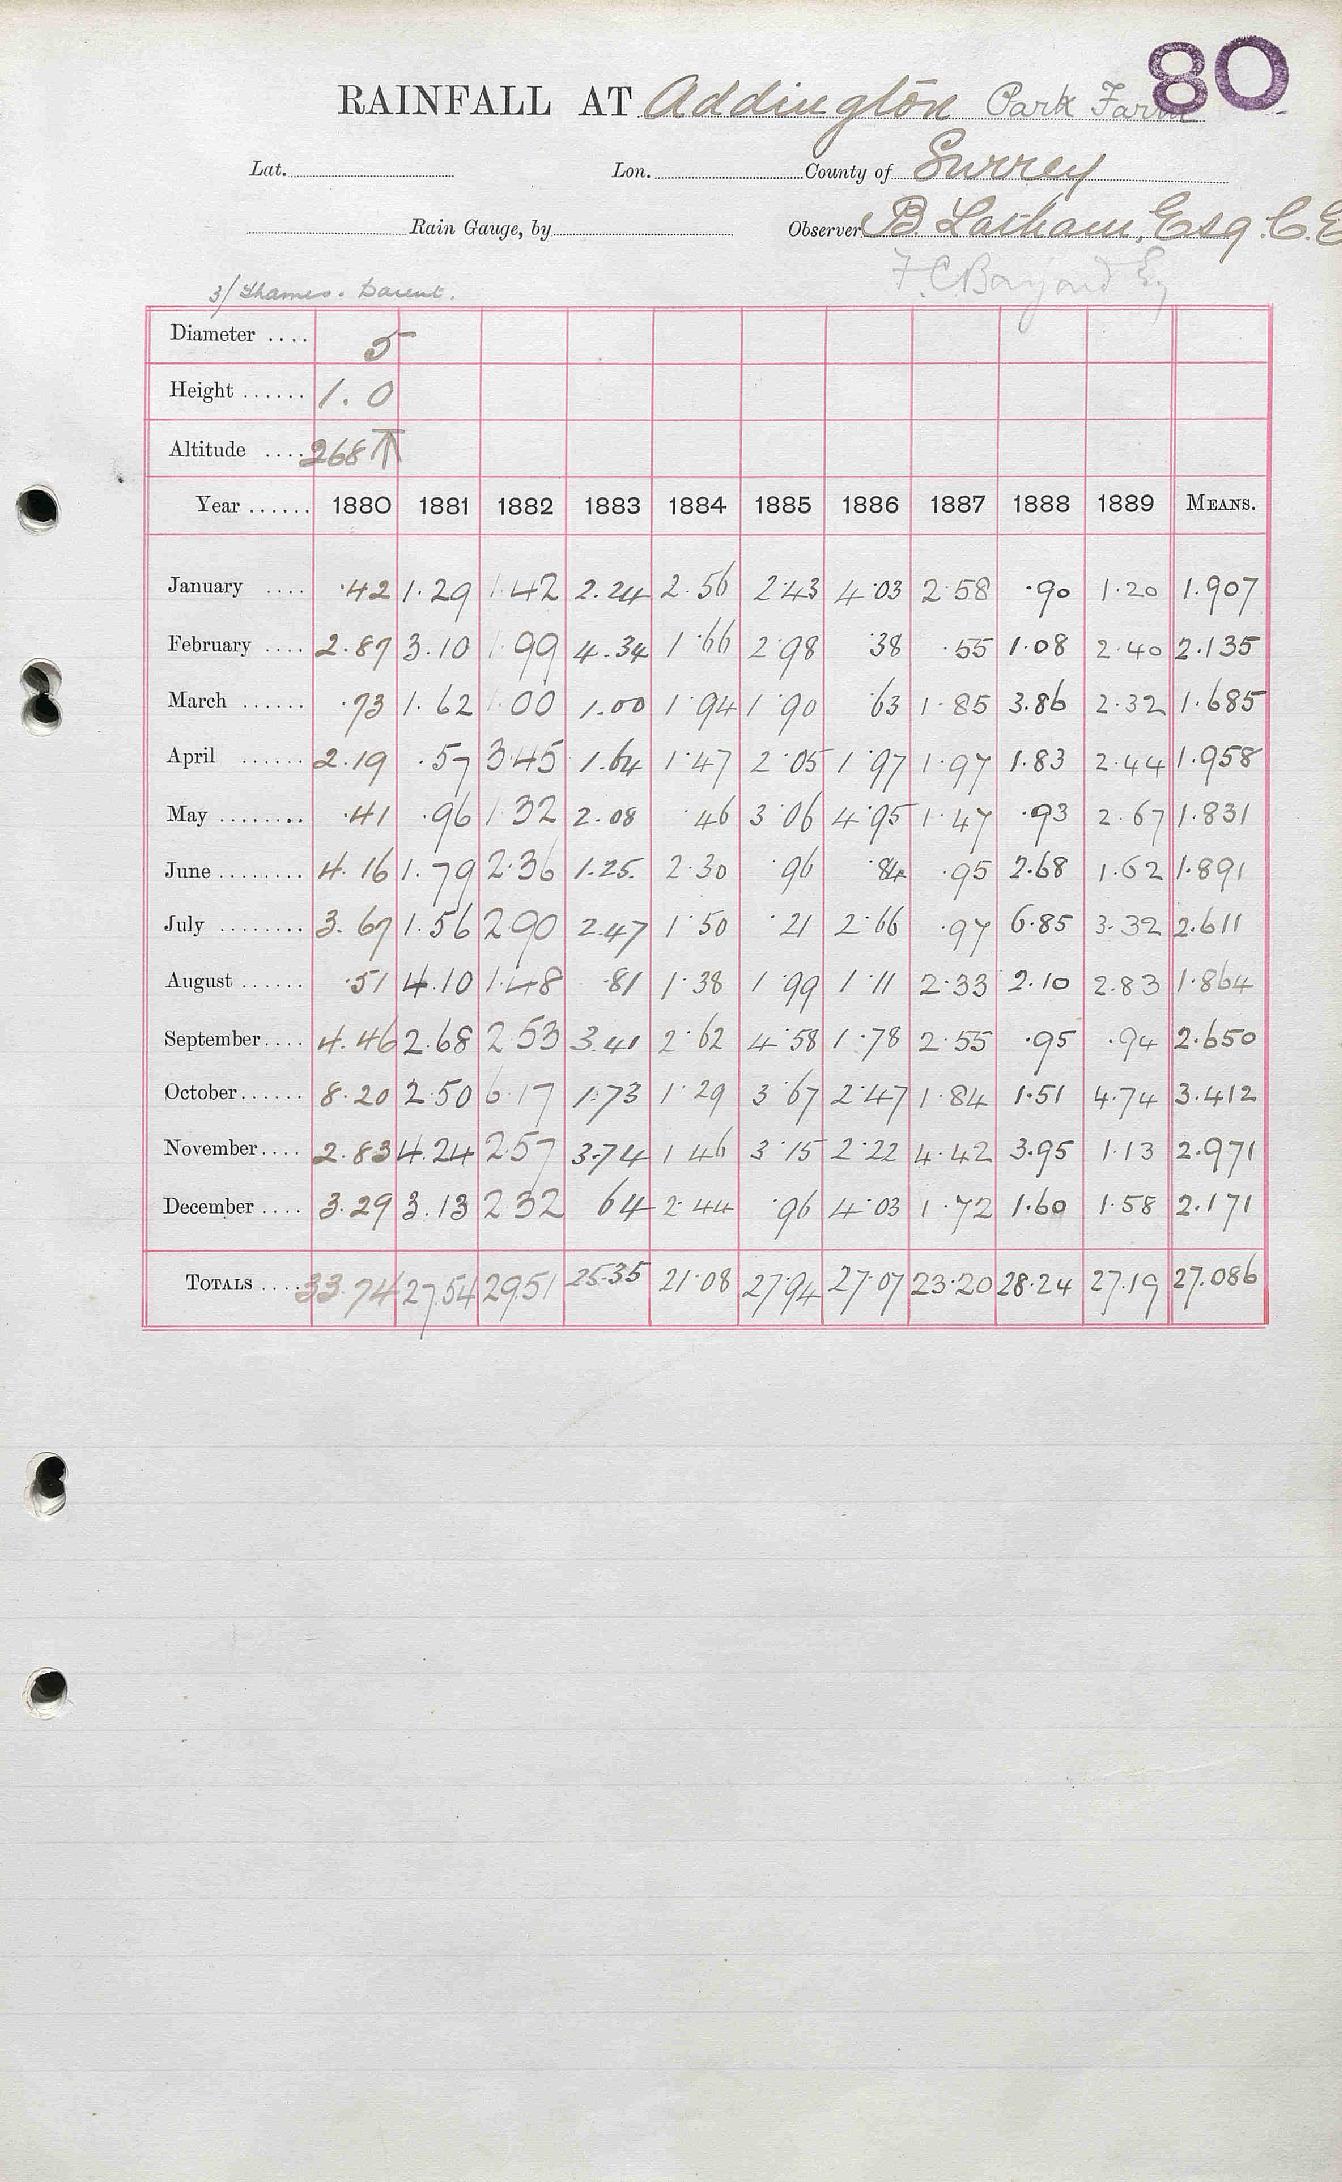 80
RAINFALL AT Addington Park Farm
Lat. Lon. County of Surrey
Rain Gauge, by Observer B Latham, Esq. C.E
3/ Thames. Darent.
F. C. Bayard Esq
Diameter .... 5
Height ...... 1. 0
Altitude .... 268
Year ...... 1880 1881 1882 1883 1884 1885 1886 1887 1888 1889 MEANS.
January .... .42 1.29 1.42 2.24 2.56 2.43 4.03 2.58 .90 1.20 1.907
February .... 2.87 3.10 1.99 4.34 1.66 2.98 .38 .55 1.08 2.40 2.135
March ...... .73 1.62 1.00 1.00 1.94 1.90 .63 1.85 3.86 2.32 1.685
April ...... 2.19 .57 3.45 1.64 1.47 2.05 1.97 1.97 1.83 2.44 1.958
May ........ .41 .96 1.32 2.08 .46 3.06 4.95 1.47 .93 2.67 1.831
June ........ 4.16 1.79 2.36 1.25. 2.30 .96 .84 .95 2.68 1.62 1.891
July ........ 3.67 1.56 2.90 2.47 1.50 .21 2.66 .97 6.85 3.32 2.611
August ...... .51 4.10 1.48 .81 1.38 1.99 1.11 2.33 2.10 2.83 1.864
September .... 4.46 2.68 2.53 3.41 2.62 4.58 1.78 2.55 .95 .94 2.650
October ...... 8.20 2.50 6.17 1.73 1.29 3.67 2.47 1.84 1.51 4.74 3.412
November .... 2.83 4.24 2.57 3.74 1.46 3.15 2.22 4.42 3.95 1.13 2.971
December .... 3.29 3.13 2.32 64 2.44 .96 4.03 1.72 1.60 1.58 2.171
TOTALS .... 33.74 27.54 29.51 25.35 21.08 27.94 27.07 23.20 28.24 27.19 27.086